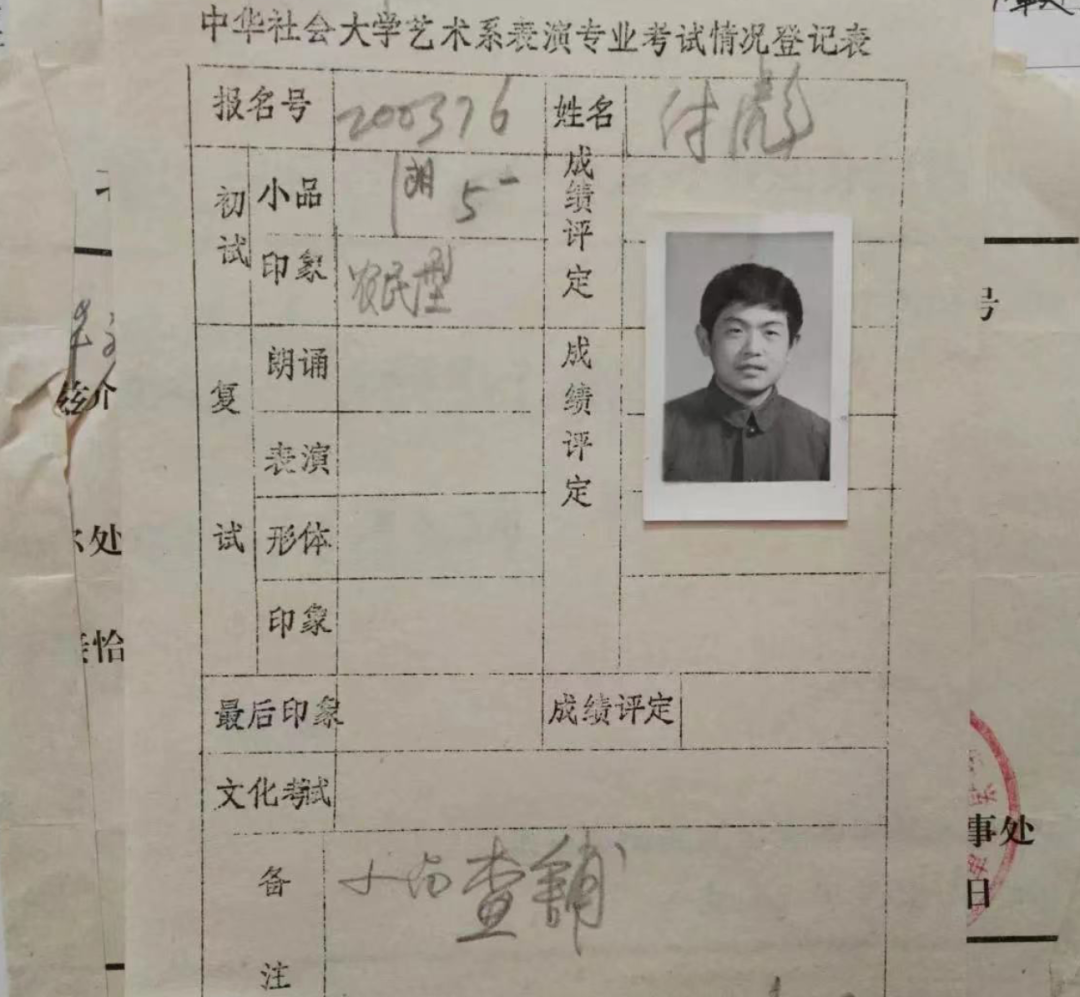 中华社会大学艺术系表演专业考试情况登记表
报名号 200376 姓名 付彪
初试 小品 朗 5- 成绩评定
印象 农民型
复试 朗诵 成绩评定
表演
形体
印象
最后印象 成绩评定
文化考试
备注 查铺
号
兹介
处
怡
事处
日